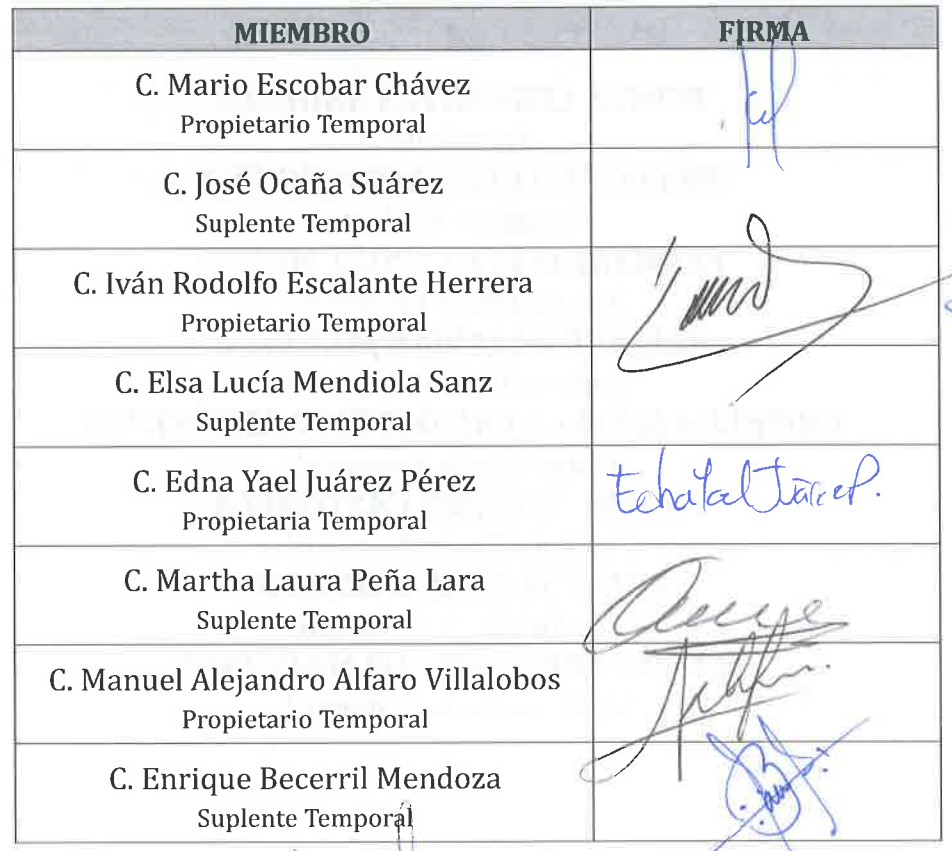 MIEMBRO FIRMA
C. Mario Escobar Chávez
Propietario Temporal
C. José Ocaña Suárez
Suplente Temporal
C. Iván Rodolfo Escalante Herrera
Propietario Temporal
C. Elsa Lucía Mendiola Sanz
Suplente Temporal
C. Edna Yael Juárez Pérez
Propietaria Temporal
C. Martha Laura Peña Lara
Suplente Temporal
C. Manuel Alejandro Alfaro Villalobos
Propietario Temporal
C. Enrique Becerril Mendoza
Suplente Temporal